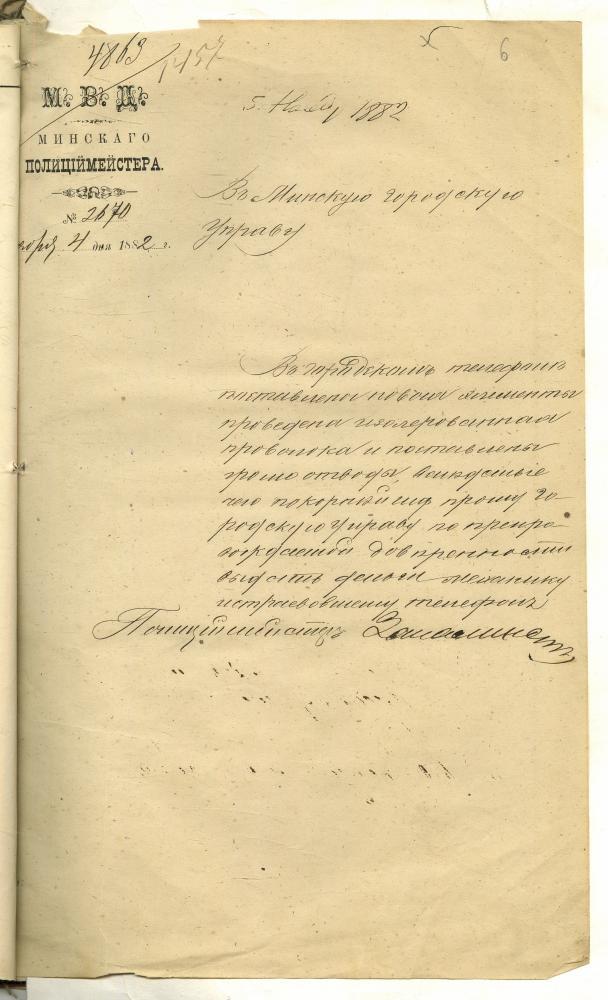 4863
1457
6
М. В. Д.
МИНСКАГО
ПОЛИЦІЙМЕЙСТЕРА.
№ 2670
4 дня 1882 г.
5 1882
Въ Минскую городскую
Управу
Въ городскомъ телефонѣ
поставлены новые элементы
проведена изолерованная
проволока и поставлены
громоотводы,
чего покорнѣйше прошу Го-
родскую Управу по препро-
вождаемой довѣренности
выдать деньги механику
исправившему телефонъ
Полиціймейстеръ